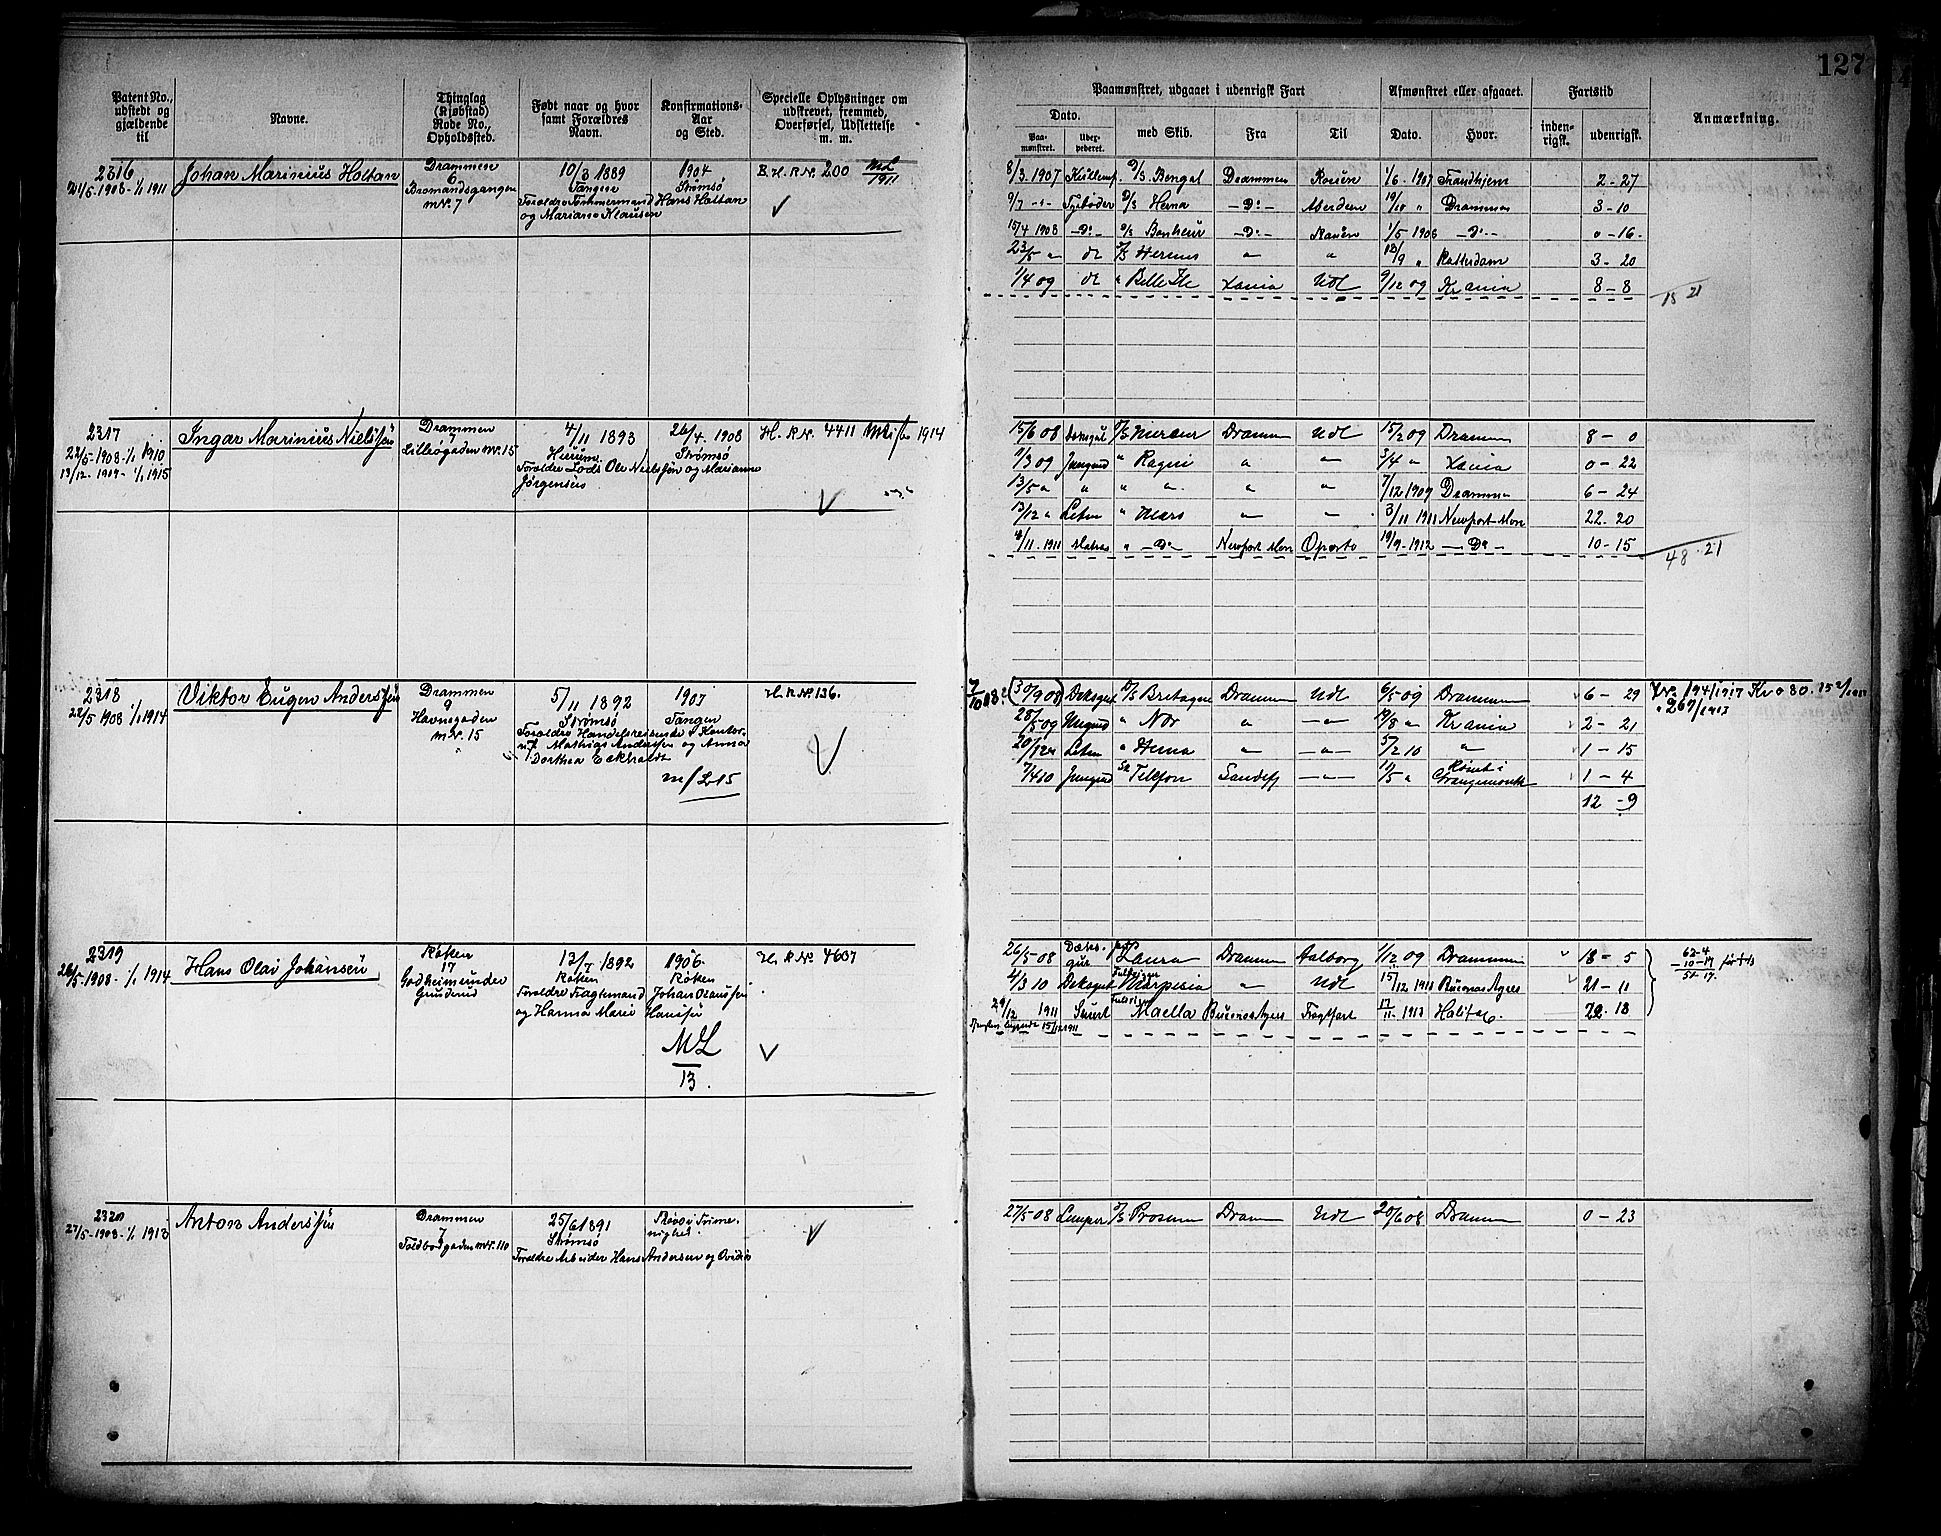 127
Patent No., udstedt og gjældende til
Navne.
Thinglag (Kjøbstad) Rode No., Opholdssted.
Født naar og hvor samt Forældres Navn.
Konfirmations-Aar og Sted.
Specielle Oplysninger om udskrevet, fremmed, Overførsel, Udslettelse m. m.
Paamønstret, udgaaet i udenrigsk Fart
Afmønstret eller afgaaet.
Fartstid
Anmærkning.
Dato.
Paamønstret.
med Skib.
Fra
Til
Dato.
Hvor.
indenrigsk.
udenrigsk.
2316
Johan Marinius Holtan
Drammen
6
Bromandsgangen
m Nr. 7
10/3 1889
Tangen
Forældre Tømmermand Hans Holtan
og Mariane Klausen
1904
Strømsø
E. H. R. No. 200
ML
1911
8/3 1907 D/S Bengal Drammen Rouen 1/6 1907 Trondhjem 2-27
D/S Herna -Do- Aberdeen 19/10 " Drammen 3-10
15/4 1908 -Do- D/S Bonheur -Do- Rouen 1/5 1908 -Do- 0-16
23/5 " D/S Hermes " " Rotterdam 3-20
1/4 09 " Belle Ile Xania Udl 9/12 09 Krania 8-8
18 21
2317
22/5-1908-1/1 1910
13/12-1909-1/1 1915
Ingar Marinius Nielsen
Drammen
7
Lilleøgaden m Nr. 15
4/11 1893
Hurum
Forældre Lods Ole Nielsen og Marianne
Jørgensen
26/4 1908
Strømsø
H. R. No. 4411
1914
15/6 08 D/S Mercur Drammen Udl 15/2 09 Drammen 8-0
1/3 09 Jungmd " Ragni " " 3/4 " Xania 0-22
13/5 " " " " " " 7/12 1909 Drammen 6-24
13/12 " Letm " Mars " " 3/11 1911 Newport Mon 22-20
4/11-1911 Matros " -Do- Newport Mon Oporto 19/9-1912 -Do- 10-15
48-21
2318
22/5 1908 1/1 1914
Viktor Eugen Anderssen
Drammen
9
Havnegaden
m Nr. 15
5/11 1892
Strømsø
Forældre Handelsreisende & Kontor-
Mathias Andersen og Anna
Dorthea Eckholdt
1907
Tangen
m/L 15
H. R. No. 136.
7/10 08 (30/9 08) Deksgut D/S Bretagne Drammen Udl 6/5 09 Drammen 6-29
25/5 09 Jungmd " Nor " " 19/8 " Krania 2-21
20/12 " Letm " Herna " " 5/2 10 " 1-15
7/4 10 Jungmd Sk Telefon Sandefj " 11/5 " Rømt i
Grangemouth 1-4
12-9
Jr. 194/1917 Kr 0 80.
" 267/1913
2319
26/5-1908-1/1 1914
Hans Olai Johansen
Røken
17
Gjodheimeunder
Grunderud
13/7 1892
Røken
Forældre Fragtemand Johan Olaussen
og Hanna Marie Hansen
1906
Røken
ML
13.
H. R. No. 4607
26/5-08 Dæksgut Laura Drammen Aalborg 1/12 09 Drammen 18-5
4/3 10 Deksgut Marpesia " Udl 15/12 1911 Buenos Ayres 21-11
29/12 1911 Maella Buenos Ayres Fragtfart 17/11-1913 Halifax. 22-18
62-4
-10-17
51-17.
2320
27/5-1908-1/1 1913
Anton Anderssen
Drammen
7
Toldbodgaden m Nr. 110
25/6 1891
Strømsø
Forældre Arbeider Hans Andersen og Ovidia
27/5-08 Lemper D/S Drammen Udl 20/6 08 Drammen 0-23